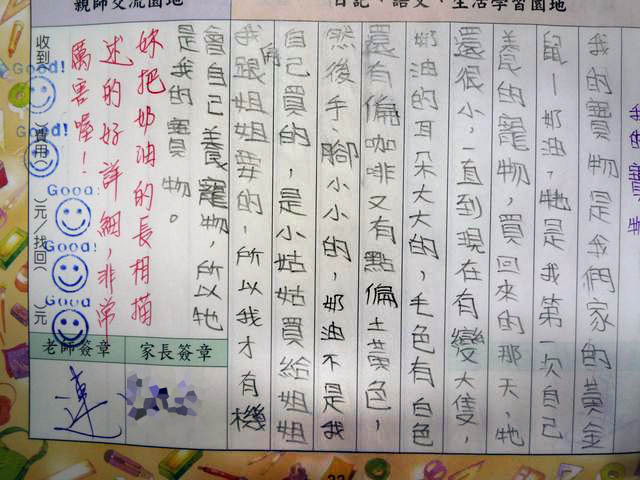 日記、語文、生活學習園地
親師交流園地
我的寶物
我的寶物是我們家的黃金
鼠—奶油,牠是我第一次自己
養的寵物,買回來的那天,牠
還很小,一直到現在有變大隻,
奶油的耳朵大大的,毛色有白色
還有偏咖啡又有點偏土黃色,
然後手、腳小小的,奶油不是我
自己買的,是小姑姑買給姐姐
我跟姐姐要的,所以我才有機
會自己養寵物,所以牠
是我的寶物。
妳把奶油的長相描
述的好詳細,非常
厲害喔!
收到( )費用( )元/找回( )元
Good!
Good!
Good!
Good!
Good
老師簽章
家長簽章
連